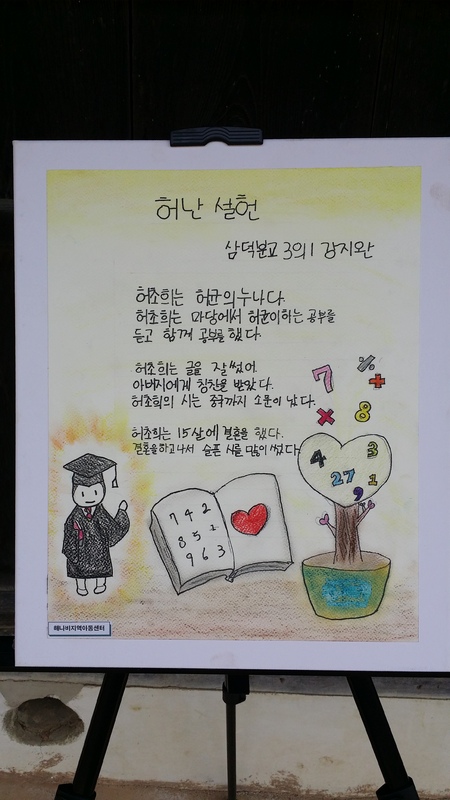 허난 설헌
삼덕분교 3의 1 강지완
허초희는 허균의 누나다.
허초희는 마당에서 허균이하는 공부를
듣고 함께 공부를 했다.
허초희는 글을 잘 썼어.
아버지에게 칭찬을 받았다.
허초희의 시는 중국까지 소문이 났다.
허초희는 15살에 결혼을 했다.
결혼을하고나서 슬픈 시를 많이 썼다.
7 % +
× 8
4 3
27 1
9
7 4 2
8 5 1
9 6 3
해나비지역아동센터